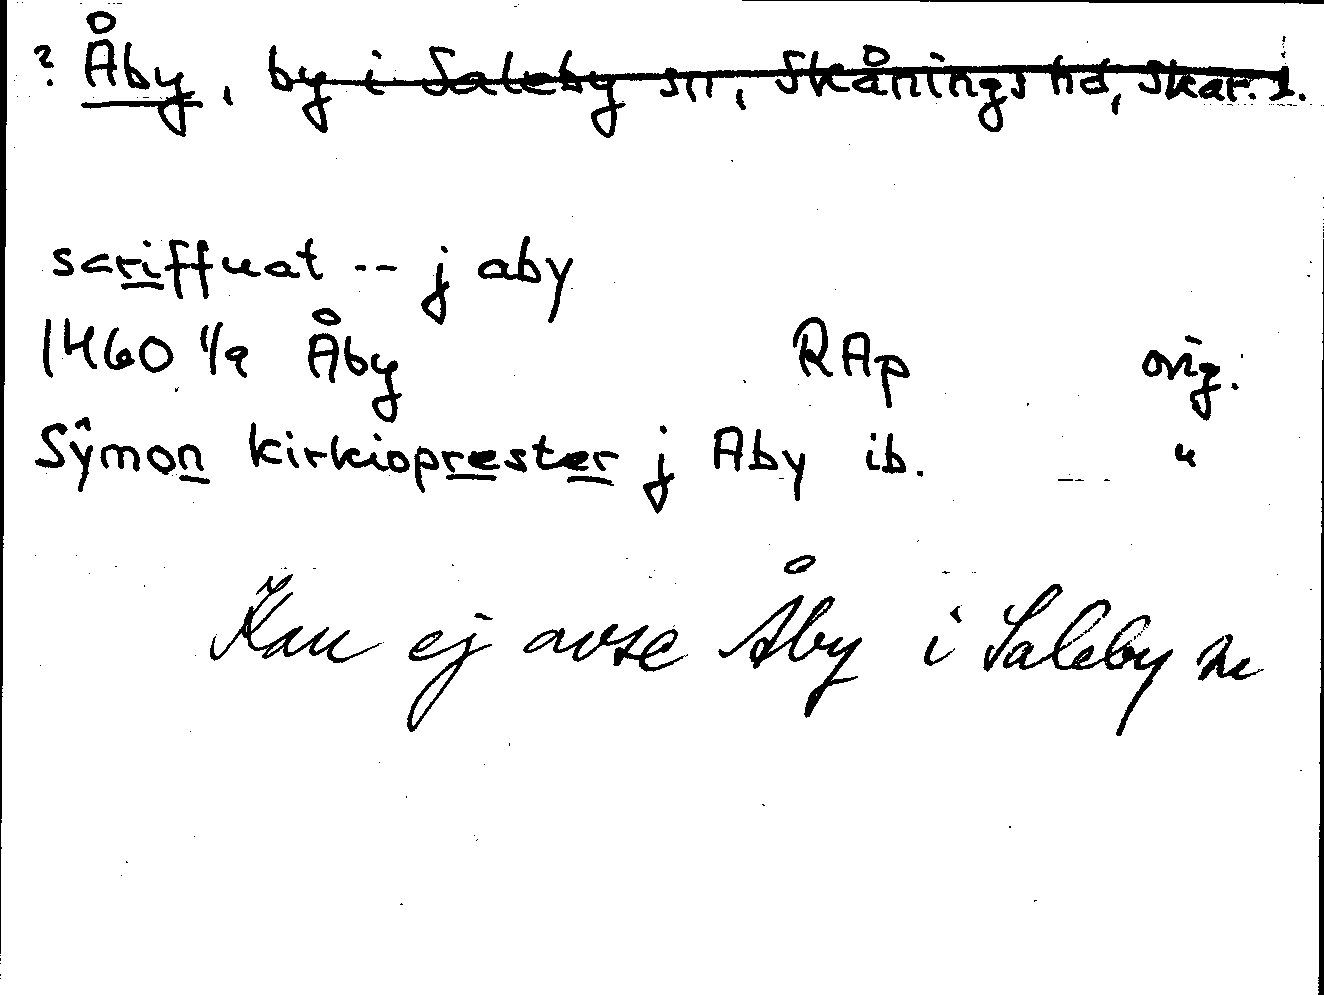 ? Åby, by i Saleby sn, Skånings hd, Skar. l.
scriffuat -- j aby
1460 1/9 Åby RAp orig.
Sÿmon kirkioprester j Aby ib. "
Kan ej avse Åby i Saleby sn